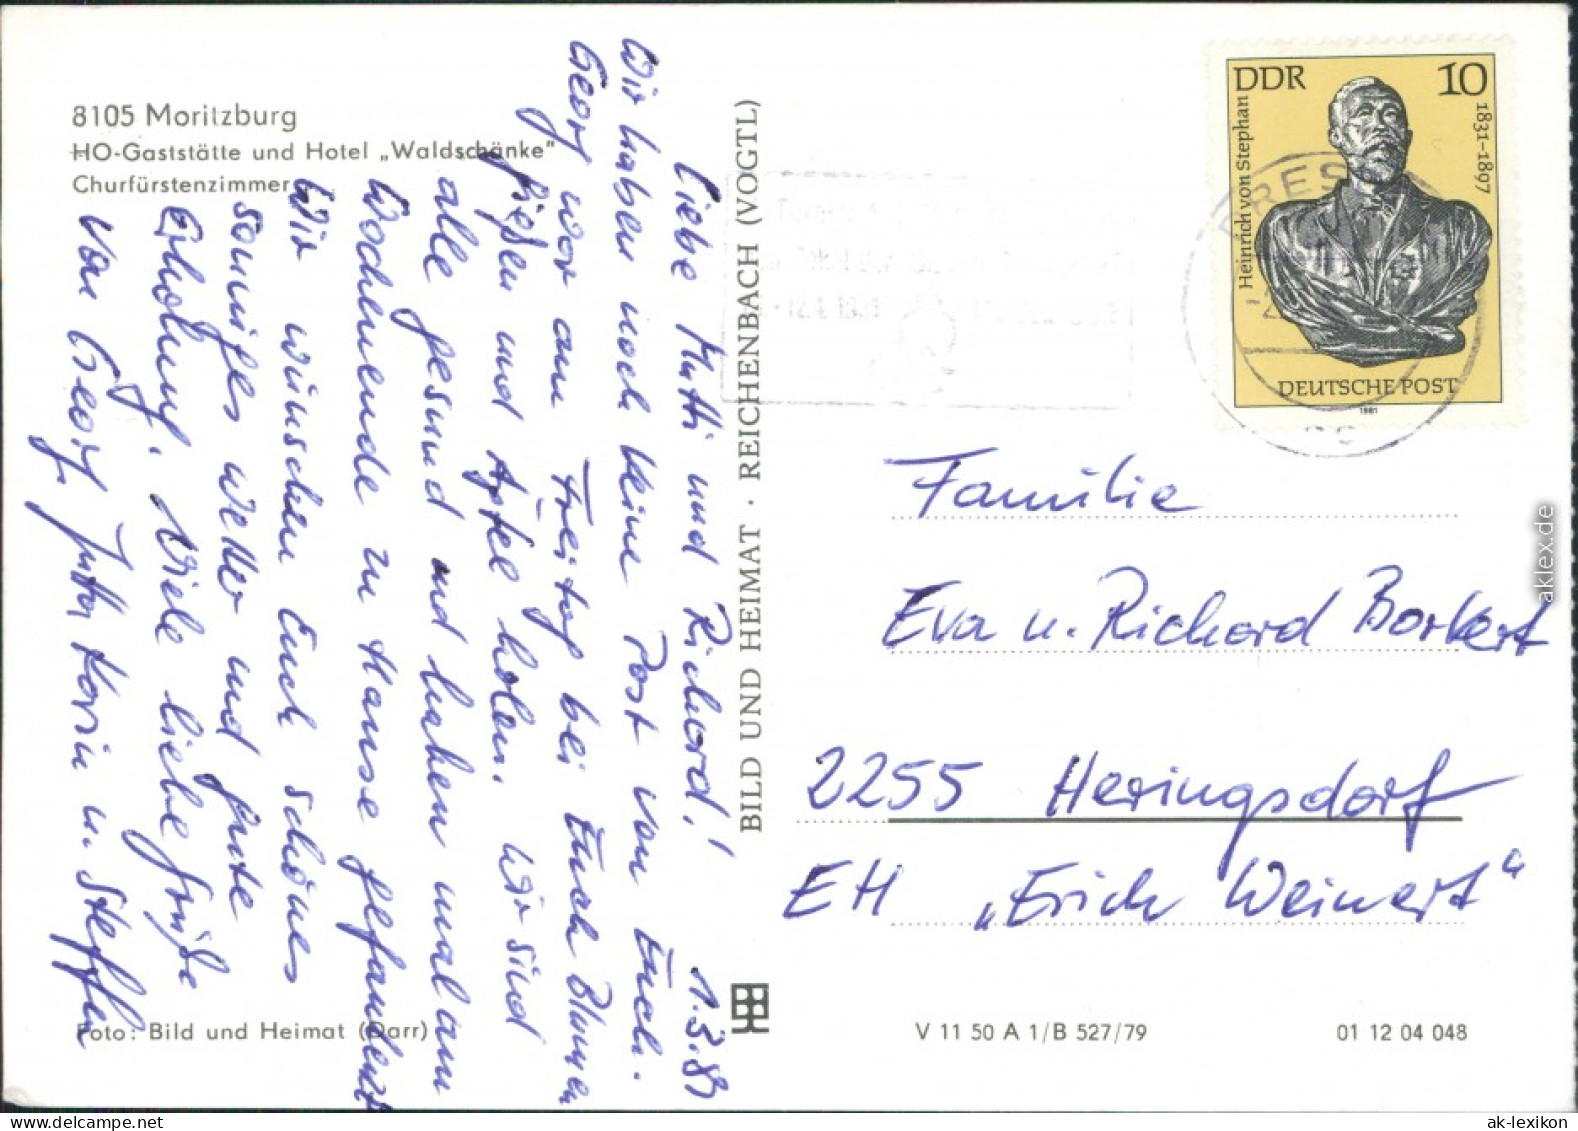 8105 Moritzburg
HO-Gaststätte und Hotel „Waldschänke"
Churfürstenzimmer
1.3.81
Liebe Mutti und Richard!
Wir haben noch keine Post von Euch.
Georg war am Freitag bei Euch Blumen
gießen und Äpfel holen. Wir sind
alle gesund und haben mal am
Wochenende zu Hause gefaulenzt
Wir wünschen Euch schönes
sonniges Wetter und gute
Erholung. Viele liebe Grüße
von Georg, Jutta Karin u. Steffen
Foto: Bild und Heimat (Darr)
BILD UND HEIMAT · REICHENBACH (VOGTL)
DDR 10
Heinrich von Stephan
1831-1897
DEUTSCHE POST
1981
Familie
Eva u. Richard Borkert
2255 Heringsdorf
EH „Erich Weinert"
V 11 50 A 1/B 527/79
01 12 04 048
aklex.de
ak-lexikon